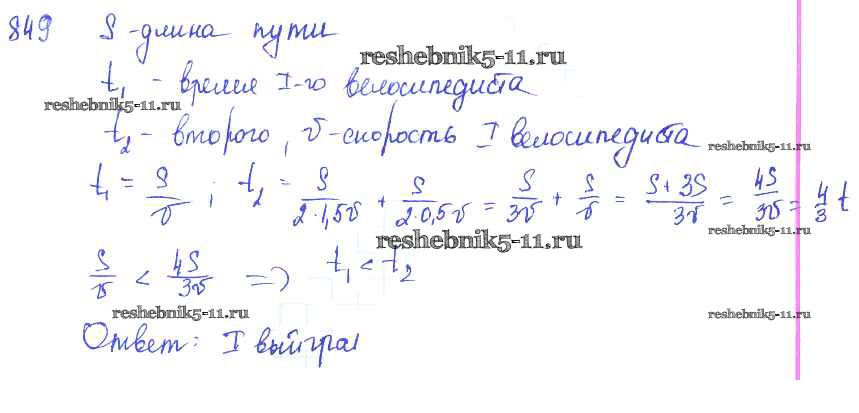 849 S - длина пути
reshebnik5-11.ru
t₁ - время I-го велосипедиста
reshebnik5-11.ru
t₂ - второго, v - скорость I велосипедиста
reshebnik5-11.ru
t₁ = S/v ; t₂ = S/(2·1,5v) + S/(2·0,5v) = S/3v + S/v = (S+3S)/3v = 4S/3v = 4/3 t
reshebnik5-11.ru
reshebnik5-11.ru
S/v < 4S/3v => t₁ < t₂
reshebnik5-11.ru
reshebnik5-11.ru
Ответ: I выйграл